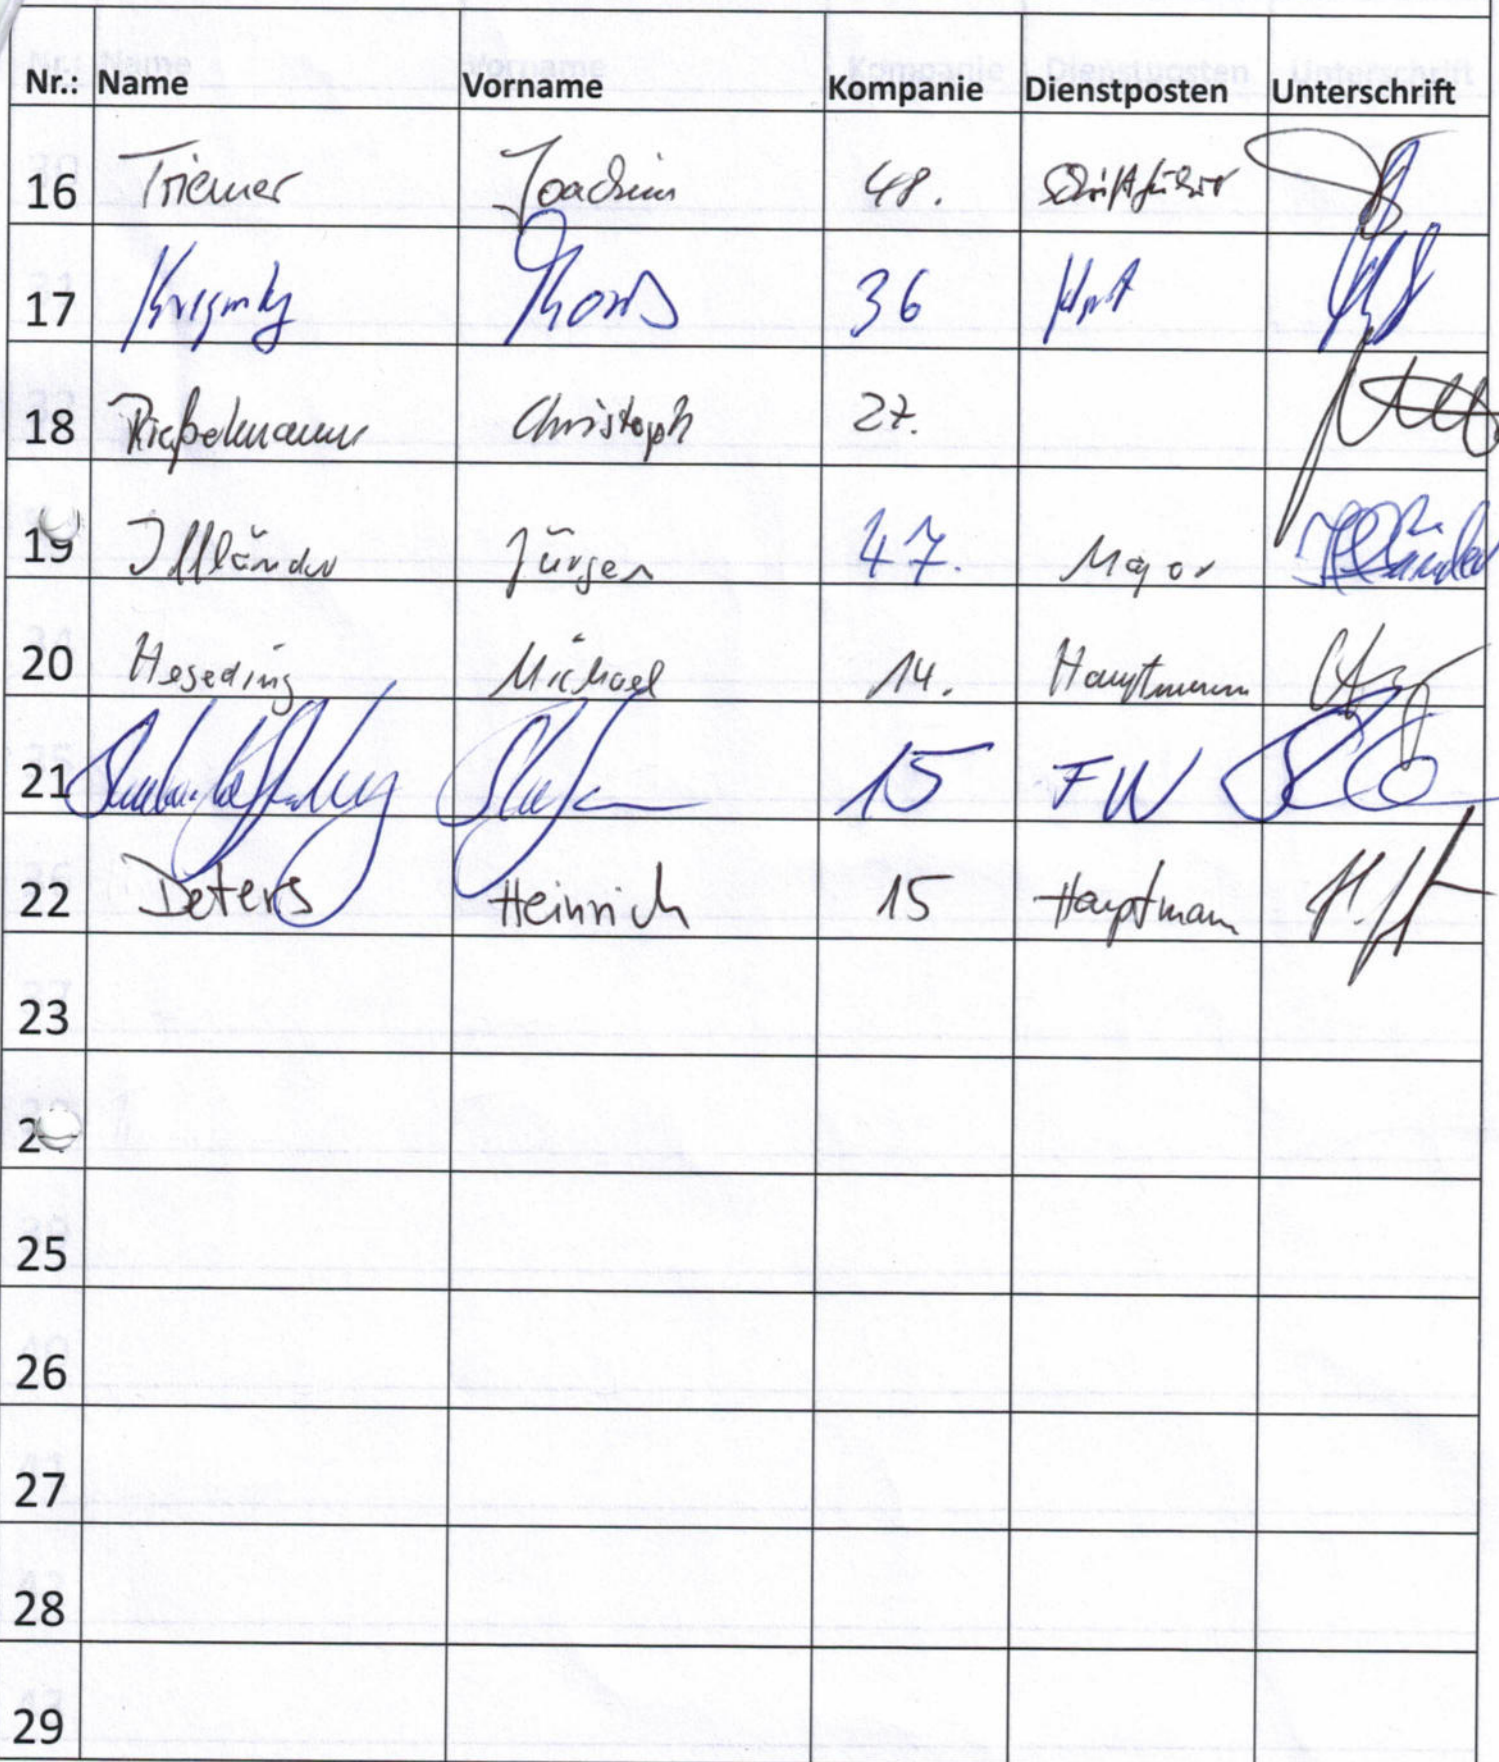 Nr.: Name Vorname Kompanie Dienstposten Unterschrift
16 Triemer Joachim 48. Schriftführer
17 Thomas 36
18 Rießelmann Christoph 27.
19 Illländer Jürgen 47. Major
20 Heseding Michael 14. Hauptmann
21 Stefan 15 FW
22 Deters Heinrich 15 Hauptmann
23
2
25
26
27
28
29